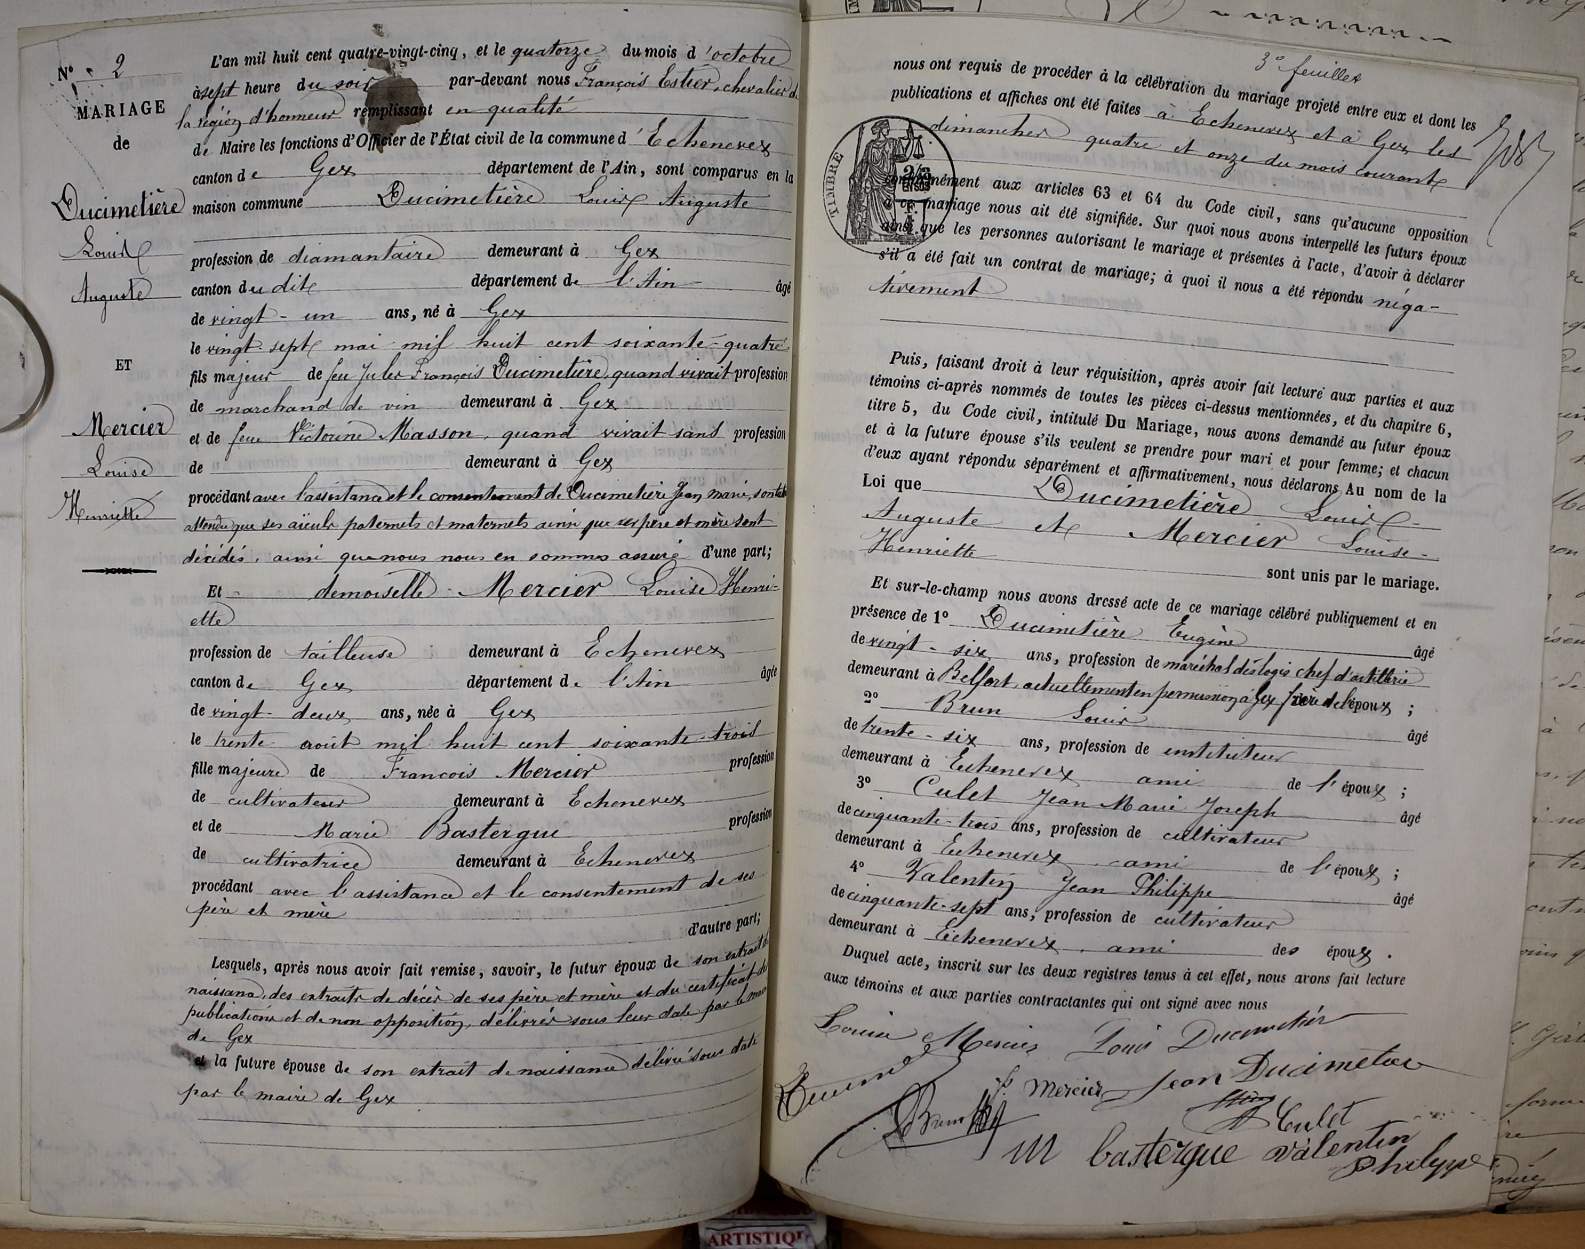 N° 2
MARIAGE
de
Ducimetière
Louis
Auguste
ET
Mercier
Louise
Henriette
L'an mil huit cent quatre-vingt-cinq, et le quatorze du mois d'octobre
à sept heure du soir par-devant nous François Estier, chevalier de
la légion d'honneur remplissant en qualité
de Maire les fonctions d'Officier de l'État civil de la commune d'Echenevex
canton de Gex département de l'Ain, sont comparus en la
maison commune Ducimetière Louis Auguste
profession de diamantaire demeurant à Gex
canton du dit département de l'Ain âgé
de vingt-un ans, né à Gex
le vingt-sept mai mil huit cent soixante-quatre
fils majeur de feu Jules François Ducimetière, quand vivait profession
de marchand de vin demeurant à Gex
et de feue Victorine Masson, quand vivait sans profession
de demeurant à Gex
procédant avec l'assistance et le consentement de Ducimetière Jean Marie, son
attendu que ses aïeuls paternels et maternels ainsi que ses père et mère sont
décédés, ainsi que nous nous en sommes assuré d'une part;
Et demoiselle Mercier Louise Henri-
ette
profession de tailleuse demeurant à Echenevex
canton de Gex département de l'Ain âgée
de vingt-deux ans, née à Gex
le trente août mil huit cent soixante-trois
fille majeure de François Mercier profession
de cultivateur demeurant à Echenevex
et de Marie Bastergue profession
de cultivatrice demeurant à Echenevex
procédant avec l'assistance et le consentement de ses
père et mère
d'autre part;
Lesquels, après nous avoir fait remise, savoir, le futur époux de son extrait de
naissance, des extraits de décès de ses père et mère et du certificat de
publications et de non opposition, délivrés sous leur date par le maire
de Gex
et la future épouse de son extrait de naissance délivré sous date
par le maire de Gex
3e feuillet
nous ont requis de procéder à la célébration du mariage projeté entre eux et dont les
publications et affiches ont été faites à Echenevex et à Gex les
dimanches quatre et onze du mois courant
TIMBRE
conformément aux articles 63 et 64 du Code civil, sans qu'aucune opposition
à ce mariage nous ait été signifiée. Sur quoi nous avons interpellé les futurs époux
ainsi que les personnes autorisant le mariage et présentes à l'acte, d'avoir à déclarer
s'il a été fait un contrat de mariage; à quoi il nous a été répondu néga-
tivement
Puis, faisant droit à leur réquisition, après avoir fait lecture aux parties et aux
témoins ci-après nommés de toutes les pièces ci-dessus mentionnées, et du chapitre 6,
titre 5, du Code civil, intitulé Du Mariage, nous avons demandé au futur époux
et à la future épouse s'ils veulent se prendre pour mari et pour femme; et chacun
d'eux ayant répondu séparément et affirmativement, nous déclarons Au nom de la
Loi que Ducimetière Louis
Auguste et Mercier Louise
Henriette
sont unis par le mariage.
Et sur-le-champ nous avons dressé acte de ce mariage célébré publiquement et en
présence de 1° Ducimetière Eugène âgé
de vingt-six ans, profession de maréchal des logis chef d'artillerie
demeurant à Belfort, actuellement en permission à Gex frère de l'époux ;
2° Brun Louis âgé
de trente-six ans, profession de instituteur
demeurant à Echenevex ami de l'époux ;
3° Culet Jean Marie Joseph âgé
de cinquante-trois ans, profession de cultivateur
demeurant à Echenevex ami de l'époux ;
4° Valentin Jean Philippe âgé
de cinquante-sept ans, profession de cultivateur
demeurant à Echenevex ami des époux.
Duquel acte, inscrit sur les deux registres tenus à cet effet, nous avons fait lecture
aux témoins et aux parties contractantes qui ont signé avec nous
Louise Mercier Louis Ducimetière
Mercier Jean Ducimetière
Brun Culet
M bastergue Valentin
Philippe
ARTISTIQ